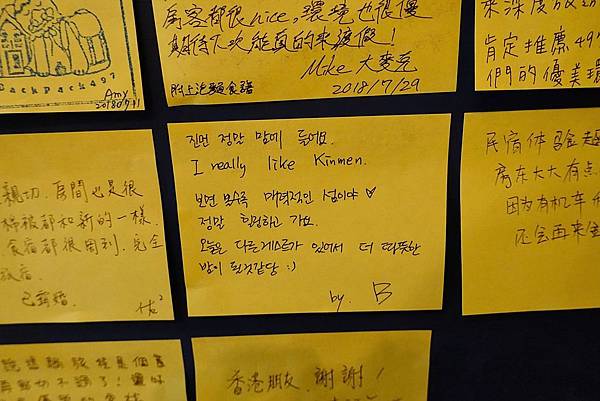 BackPack497
Amy
2018
房客都很nice,環境也很優
期待下次能真的來渡假!
附上泡麵食譜
Mike 大麥克
2018/7/29
肯定推薦497
們的優美環
진먼 정말 맘에 들어요.
I really like Kinmen.
보면 볼수록 매력적인 섬이야 ♡
정말 힐링하고 가요.
오늘은 다른 게스트가 있어서 더 따뜻한
밤이 된것같당 :)
by. B
親切.房間也是很
棉被都和新的一樣.
食宿都很周到.完全
放宿.
已露褶.
民宿体验超
房东太太有点
因为有机车
还会再来金
香港朋友,謝謝!